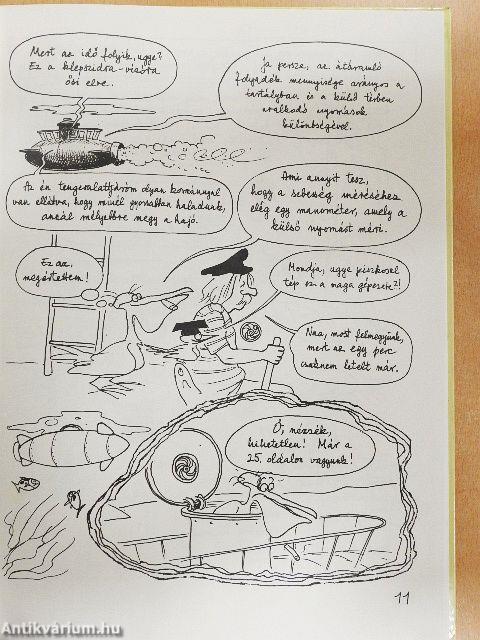 Mert az idő folyik, ugye?
Ez a klepszidra-vízóra
ősi elve.
Ja persze, az átáramló
folyadék mennyisége arányos a
tartályban és a külső térben
uralkodó nyomások
különbségével.
Az én tengeralattjáróm olyan kormánnyal
van ellátva, hogy minél gyorsabban haladunk,
annál mélyebbre megy a hajó.
Ami annyit tesz,
hogy a sebesség méréséhez
elég egy manométer, amely a
külső nyomást méri.
Ez az,
megértettem!
Mondja, ugye piszkosul
tép ez a maga gépezete?!
Naa, most felmegyünk,
mert az egy perc
csaknem letelt már.
Ó, nézzék,
hihetetlen! Már a
25. oldalon vagyunk!
11
Antikvárium.hu